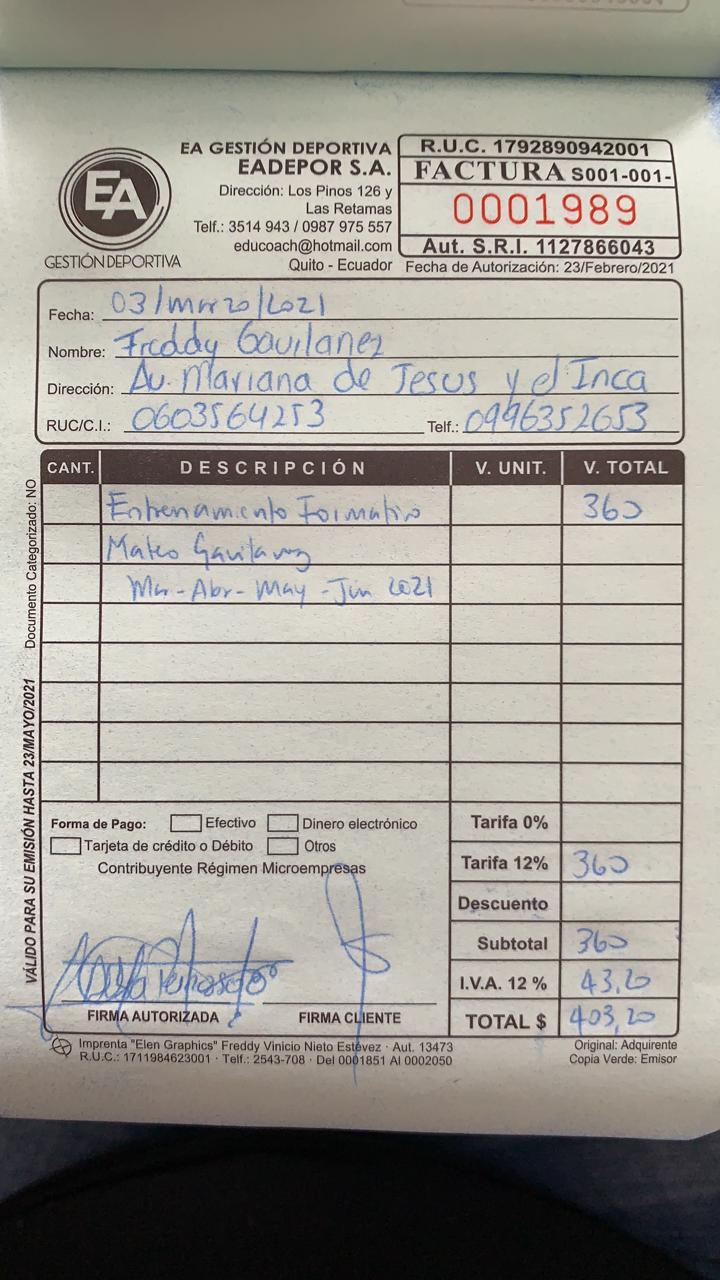 EA
GESTIÓN DEPORTIVA
EA GESTIÓN DEPORTIVA
EADEPOR S.A.
Dirección: Los Pinos 126 y
Las Retamas
Telf.: 3514 943 / 0987 975 557
educoach@hotmail.com
Quito - Ecuador
R.U.C. 1792890942001
FACTURA S001-001-
0001989
Aut. S.R.I. 1127866043
Fecha de Autorización: 23/Febrero/2021
Fecha: 03/marzo/2021
Nombre: Freddy Gavilanez
Dirección: Av. Mariana de Jesus y el Inca
RUC/C.I.: 0603564253 Telf.: 0996352653
CANT. DESCRIPCIÓN V. UNIT. V. TOTAL
Entrenamiento Formativo 360
Mateo Gavilanez
Mar-Abr-May-Jun 2021
Documento Categorizado: NO
VÁLIDO PARA SU EMISIÓN HASTA 23/MAYO/2021
Forma de Pago: Efectivo Dinero electrónico
Tarjeta de crédito o Débito Otros
Contribuyente Régimen Microempresas
Tarifa 0%
Tarifa 12% 360
Descuento
Subtotal 360
I.V.A. 12 % 43,20
TOTAL $ 403,20
FIRMA AUTORIZADA FIRMA CLIENTE
Imprenta "Elen Graphics" Freddy Vinicio Nieto Estévez · Aut. 13473
R.U.C.: 1711984623001 · Telf.: 2543-708 · Del 0001851 Al 0002050
Original: Adquirente
Copia Verde: Emisor